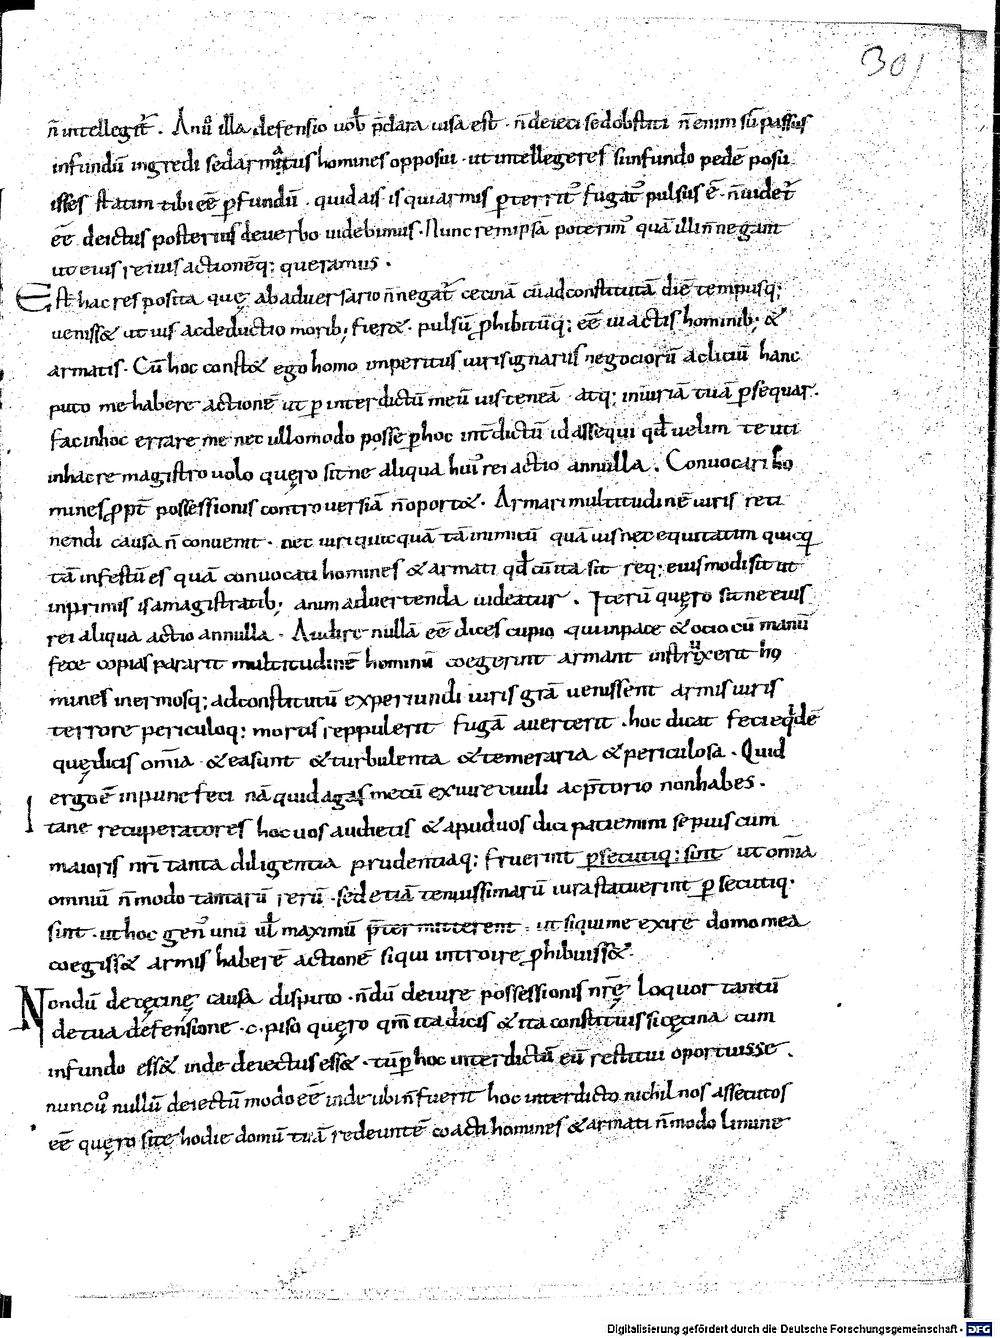 301
n̄ intellegit̄ . An u͛ illa defensio uob̄ p̄clara uisa est · n̄ deieci sed obstiti n̄ enim sū passus
in fundū ingredi sed armatus homines opposui · ut intellegeres si in fundo pedē posu
isses statim tibi eē p fundū . quid ais is qui armis p territ͛ fugat͛ pulsus ē · n̄ uidet̄
eē deictus posterius de uerbo uidebimus · Nunc rem ipsā poterim͛ quā illi n̄ negant
ut eius rei uis actionēq; queramus .
Est hac res posita quę ab aduersario n̄ negat̄ cecinā cū ad constitutā diē tempusq;
ueniss& ut uis ac deductio morib; fier& · pulsū phibitūq; eē ui actis hominib; &
armatis . Cū hoc const& ego homo imperitus iuris ignarus negociorū ac litiū hanc
puto me habere actionē ut p interdictū meū uis teneā atq; iniuriā tuā p sequar .
fac in hoc errare me nec ullo modo posse p hoc int̄dictū id assequi qđ uelim te uti
in hac re magistro uolo quęro sit ne aliqua hui͛ rei actio an nulla . Conuocari ho
mines ppt̄ possessionis controuersiā n̄ oport& . Armari multitudinē iuris reti
nendi causā n̄ conuenit . nec iuri quicquā tā inimicū quā uis nec equitatim quicq
tā infestū es quā conuocati homines & armati qđ cū ita sit req; eiusmodi sit ut
inprimis isa magistratib; animaduertenda uideatur . Iterū quęro sit ne eius
rei aliqua actio an nulla . Audire nullā eē dices cupio qui in pace & ocio cū manū
fece copias pararit multitudinē hominū coegerint armant instruxerit ho
mines inermosq; ad constitutū experiundi iuris grā uenissent armis uiris
terrore periculoq; mortis reppulerit fugā auerterit . hoc dicat feci eqdē
quę dicis om̄ia & ea sunt & turbulenta & temeraria & periculosa . Quid
ergo ē inpune feci nā quid agas mecū ex iure ciuili ac p̄torio non habes .
I tane recuperatores hoc uos audietis & apud uos dici patiemini sepius cum
maioris nr̄i tanta diligentia prudentiaq; fruerint p secutiq; sint ut om̄ia
omniū n̄ modo tantarū rerū · sed etiā tenuissimarū iura statuerint p secutiq·
sint · ut hoc gen͛ unū ul̄ maximū p̄ter mitterent · ut si qui me exire domo mea
coegiss& armis haberē actionē si qui introire phibuiss& .
Nondū de cęcinę causa disputo · n̄dū de iure possessionis nr̄ę loquor tantū
de tua defensione · c · piso quęro qm̄ ita dicis & ita constituis si cęcina cum
in fundo ess& inde deiectus ess& · tū p hoc interdictū eū restitui oportuisse .
nunc u͛ nullū deiectū modo eē inde ubi n̄ fuerit hoc interdicto nichil nos assecutos
eē quęro si te hodie domū tuā redeuntē coacti homines & armati n̄ modo limine
Digitalisierung gefördert durch die Deutsche Forschungsgemeinschaft - DFG